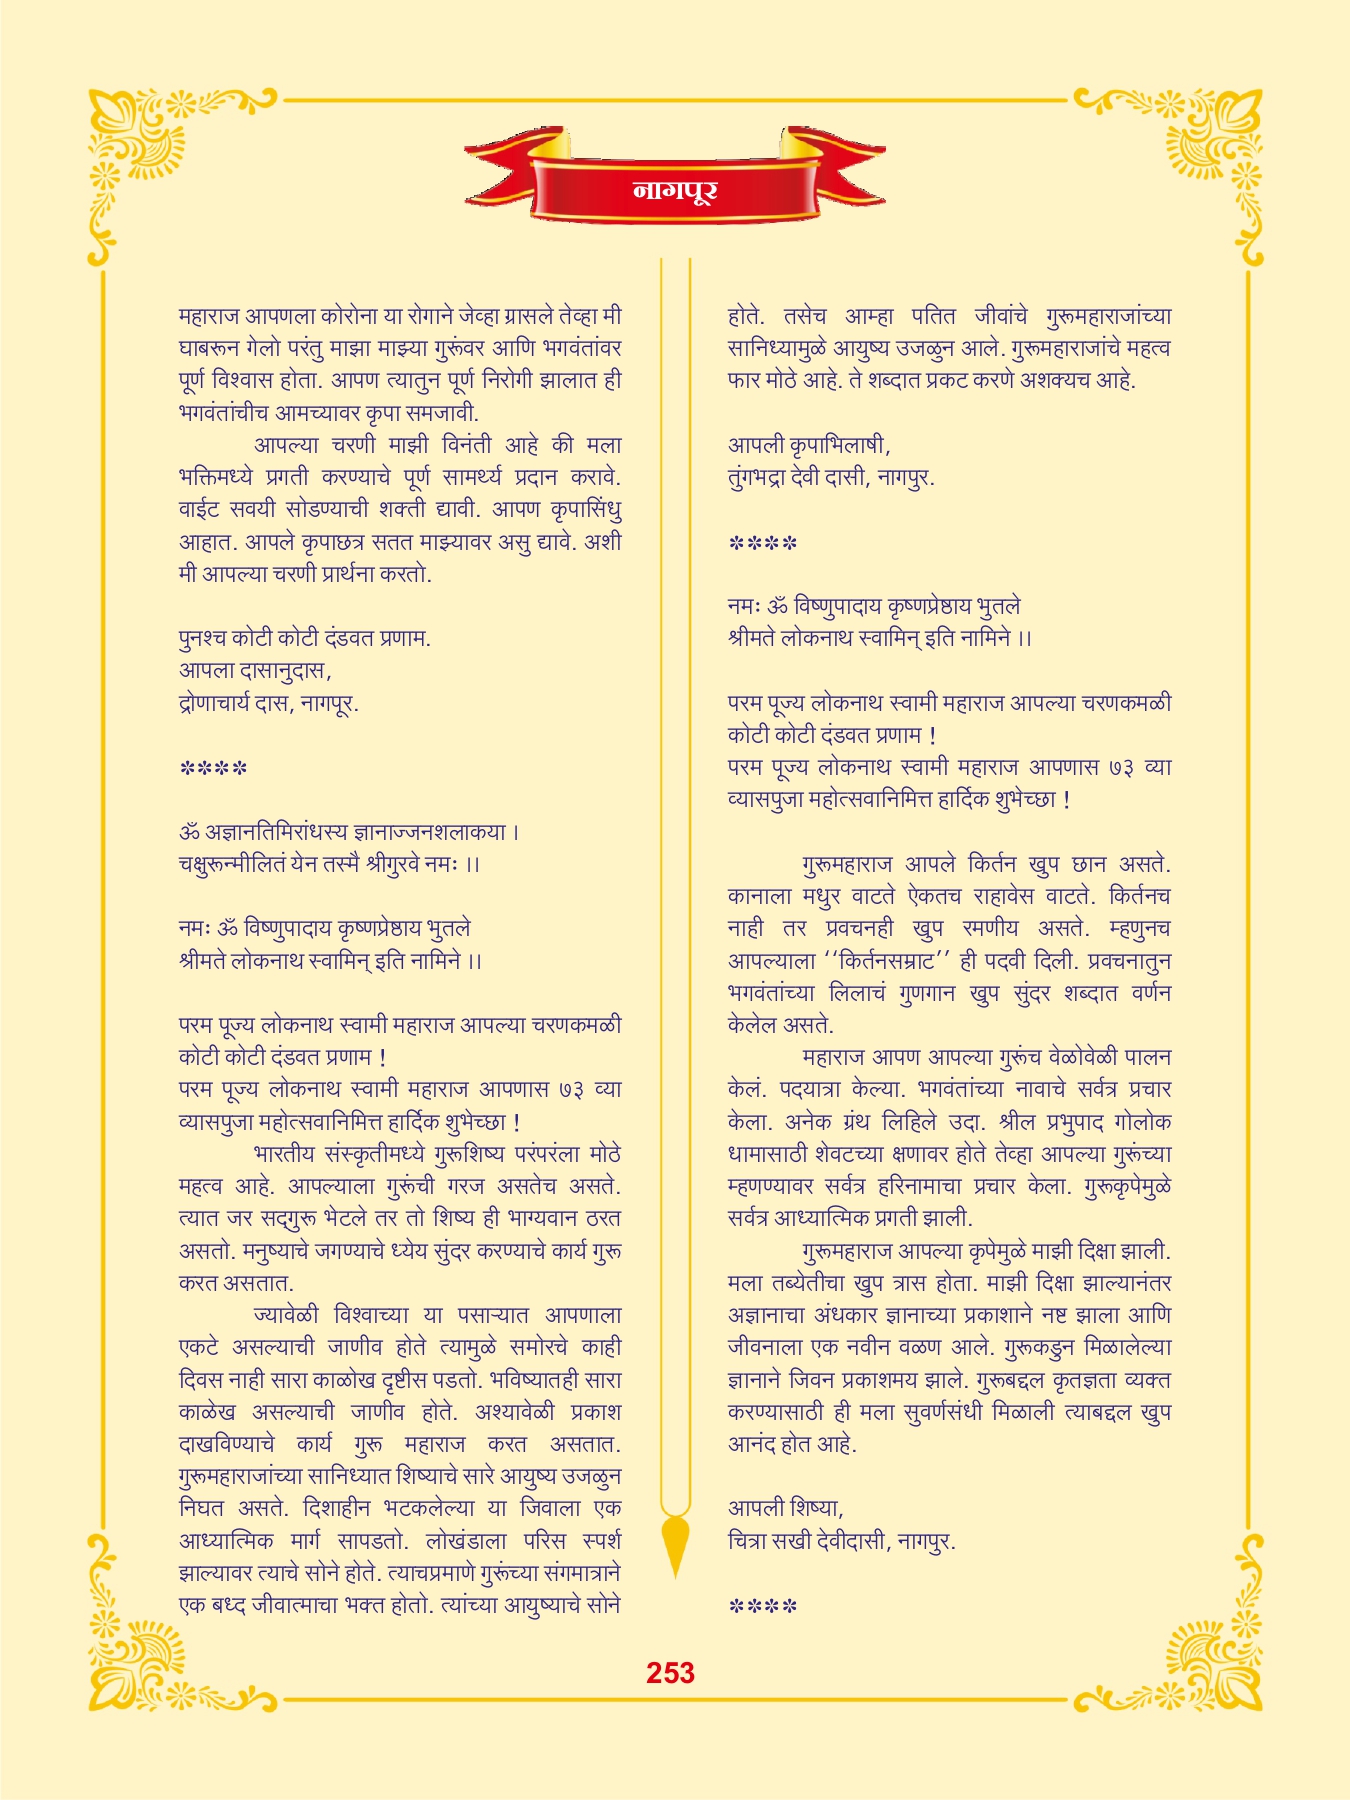 नागपूर
महाराज आपणला कोरोना या रोगाने जेव्हा ग्रासले तेव्हा मी
घाबरून गेलो परंतु माझा माझ्या गुरूंवर आणि भगवंतांवर
पूर्ण विश्वास होता. आपण त्यातुन पूर्ण निरोगी झालात ही
भगवंतांचीच आमच्यावर कृपा समजावी.
आपल्या चरणी माझी विनंती आहे की मला
भक्तिमध्ये प्रगती करण्याचे पूर्ण सामर्थ्य प्रदान करावे.
वाईट सवयी सोडण्याची शक्ती द्यावी. आपण कृपासिंधु
आहात. आपले कृपाछत्र सतत माझ्यावर असु द्यावे. अशी
मी आपल्या चरणी प्रार्थना करतो.
पुनश्च कोटी कोटी दंडवत प्रणाम.
आपला दासानुदास,
द्रोणाचार्य दास, नागपूर.
****
ॐ अज्ञानतिमिरांधस्य ज्ञानाज्जनशलाकया ।
चक्षुरून्मीलितं येन तस्मै श्रीगुरवे नमः ।।
नमः ॐ विष्णुपादाय कृष्णप्रेष्ठाय भुतले
श्रीमते लोकनाथ स्वामिन् इति नामिने ।।
परम पूज्य लोकनाथ स्वामी महाराज आपल्या चरणकमळी
कोटी कोटी दंडवत प्रणाम !
परम पूज्य लोकनाथ स्वामी महाराज आपणास ७३ व्या
व्यासपुजा महोत्सवानिमित्त हार्दिक शुभेच्छा !
भारतीय संस्कृतीमध्ये गुरूशिष्य परंपरंला मोठे
महत्व आहे. आपल्याला गुरूंची गरज असतेच असते.
त्यात जर सद्गुरू भेटले तर तो शिष्य ही भाग्यवान ठरत
असतो. मनुष्याचे जगण्याचे ध्येय सुंदर करण्याचे कार्य गुरू
करत असतात.
ज्यावेळी विश्वाच्या या पसाऱ्यात आपणाला
एकटे असल्याची जाणीव होते त्यामुळे समोरचे काही
दिवस नाही सारा काळोख दृष्टीस पडतो. भविष्यातही सारा
काळेख असल्याची जाणीव होते. अश्यावेळी प्रकाश
दाखविण्याचे कार्य गुरू महाराज करत असतात.
गुरूमहाराजांच्या सानिध्यात शिष्याचे सारे आयुष्य उजळुन
निघत असते. दिशाहीन भटकलेल्या या जिवाला एक
आध्यात्मिक मार्ग सापडतो. लोखंडाला परिस स्पर्श
झाल्यावर त्याचे सोने होते. त्याचप्रमाणे गुरूंच्या संगमात्राने
एक बध्द जीवात्माचा भक्त होतो. त्यांच्या आयुष्याचे सोने
होते. तसेच आम्हा पतित जीवांचे गुरूमहाराजांच्या
सानिध्यामुळे आयुष्य उजळुन आले. गुरूमहाराजांचे महत्व
फार मोठे आहे. ते शब्दात प्रकट करणे अशक्यच आहे.
आपली कृपाभिलाषी,
तुंगभद्रा देवी दासी, नागपुर.
****
नमः ॐ विष्णुपादाय कृष्णप्रेष्ठाय भुतले
श्रीमते लोकनाथ स्वामिन् इति नामिने ।।
परम पूज्य लोकनाथ स्वामी महाराज आपल्या चरणकमळी
कोटी कोटी दंडवत प्रणाम !
परम पूज्य लोकनाथ स्वामी महाराज आपणास ७३ व्या
व्यासपुजा महोत्सवानिमित्त हार्दिक शुभेच्छा !
गुरूमहाराज आपले किर्तन खुप छान असते.
कानाला मधुर वाटते ऐकतच राहावेस वाटते. किर्तनच
नाही तर प्रवचनही खुप रमणीय असते. म्हणुनच
आपल्याला ‘‘किर्तनसम्राट’’ ही पदवी दिली. प्रवचनातुन
भगवंतांच्या लिलाचं गुणगान खुप सुंदर शब्दात वर्णन
केलेल असते.
महाराज आपण आपल्या गुरूंच वेळोवेळी पालन
केलं. पदयात्रा केल्या. भगवंतांच्या नावाचे सर्वत्र प्रचार
केला. अनेक ग्रंथ लिहिले उदा. श्रील प्रभुपाद गोलोक
धामासाठी शेवटच्या क्षणावर होते तेव्हा आपल्या गुरूंच्या
म्हणण्यावर सर्वत्र हरिनामाचा प्रचार केला. गुरूकृपेमुळे
सर्वत्र आध्यात्मिक प्रगती झाली.
गुरूमहाराज आपल्या कृपेमुळे माझी दिक्षा झाली.
मला तब्येतीचा खुप त्रास होता. माझी दिक्षा झाल्यानंतर
अज्ञानाचा अंधकार ज्ञानाच्या प्रकाशाने नष्ट झाला आणि
जीवनाला एक नवीन वळण आले. गुरूकडुन मिळालेल्या
ज्ञानाने जिवन प्रकाशमय झाले. गुरूबद्दल कृतज्ञता व्यक्त
करण्यासाठी ही मला सुवर्णसंधी मिळाली त्याबद्दल खुप
आनंद होत आहे.
आपली शिष्या,
चित्रा सखी देवीदासी, नागपुर.
****
253